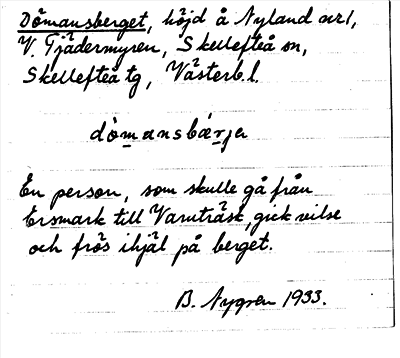 Dömansberget, höjd å Nyland nr 1,
V. Tjädermyren, Skellefteå sn,
Skellefteå tg, Västerb. l.
dò̀mansbæ̀rjə
En person, som skulle gå från
Ersmark till Varuträsk, gick vilse
och frös ihjäl på berget.
B. Nygren 1933.